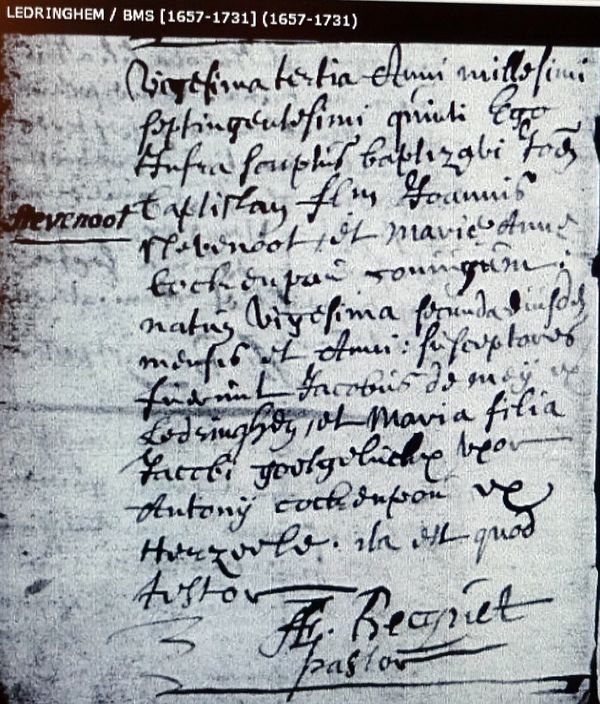 LEDRINGHEM / BMS [1657-1731] (1657-1731)
Vigesima tertia Anni millesimi
septingentesimi quinti Ego
Infra scriptus baptizavi Joēs
baptistam flm Joannis
Stevenoot
Stevenoot, et Mariæ Annæ
cockenpou coniugum :
natus vigesima secunda eiusdē
mensis et Anni : susceptores
fuerunt Jacobus de meij ex
Ledringhē, et Maria filia
Jacobi goetgeluckx uxor
Antonij cockenpou ex
Herzeele. ita est quod
testor
Becquet
pastor